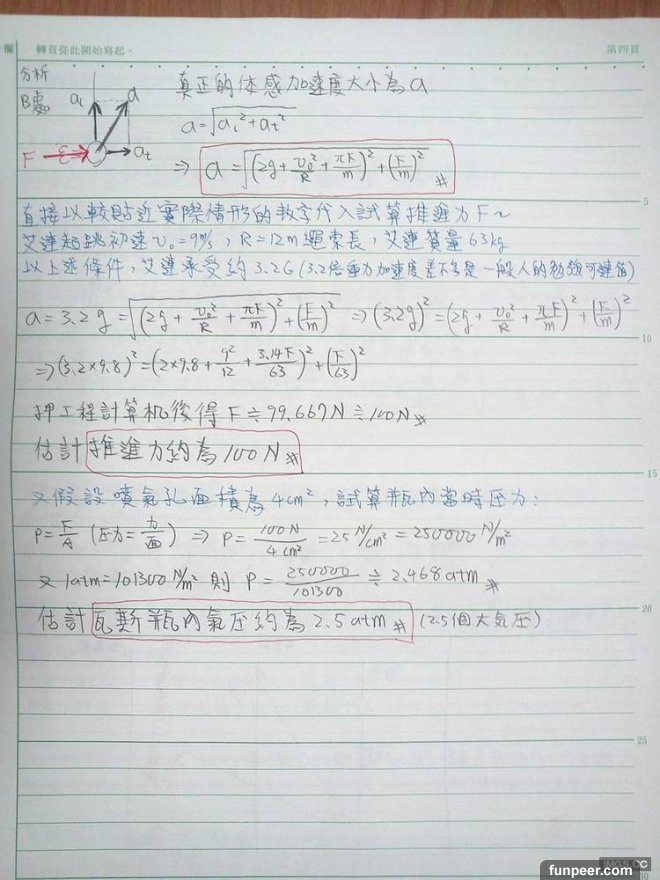 欄 轉頁從此開始寫起。 第四頁
分析
B處
aᵢ a
F ε aₜ
真正的体感加速度大小為 a
a=√(aᵢ²+aₜ²)
⇒ a=√((2g+v₀²/R+πF/m)²+(F/m)²) #
5
直接以較貼近實際情形的数字代入試算推進力F～
艾連起跳初速v₀=9m/s, R=12m繩索長, 艾連質量63kg
以上述條件, 艾連承受約3.2G(3.2倍重力加速度差不多是一般人的勉強可達笛)
a=3.2g=√((2g+v₀²/R+πF/m)²+(F/m)²) ⇒(3.2g)²=(2g+v₀²/R+πF/m)²+(F/m)²
10
⇒(3.2×9.8)²=(2×9.8+9²/12+3.14F/63)²+(F/63)²
押工程計算机後得 F≒99.667N≒100N #
估計推進力約為100N #
15
又假設噴氣孔面積為4cm², 試算瓶內當時压力:
P=F/A (压力=力/面) ⇒ P=100N/4cm²=25N/cm²=250000N/m²
又1atm=101300N/m² 則 P=250000/101300≒2.468atm #
20
估計瓦斯瓶內氣压約為2.5atm # (2.5個大気压)
25
30
IMGS.CC
funpeer.com